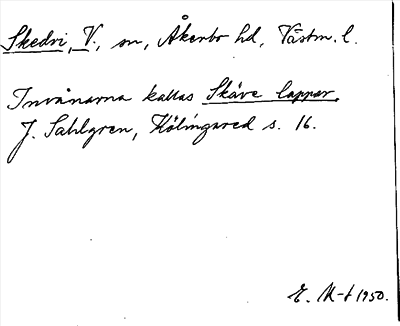 Skedvi, V., sn, Åkerbo hd, Västm. l.
Invånarna kallas Skäve lappar.
J. Sahlgren, Hölingared s. 16.
E. M-t 1950.